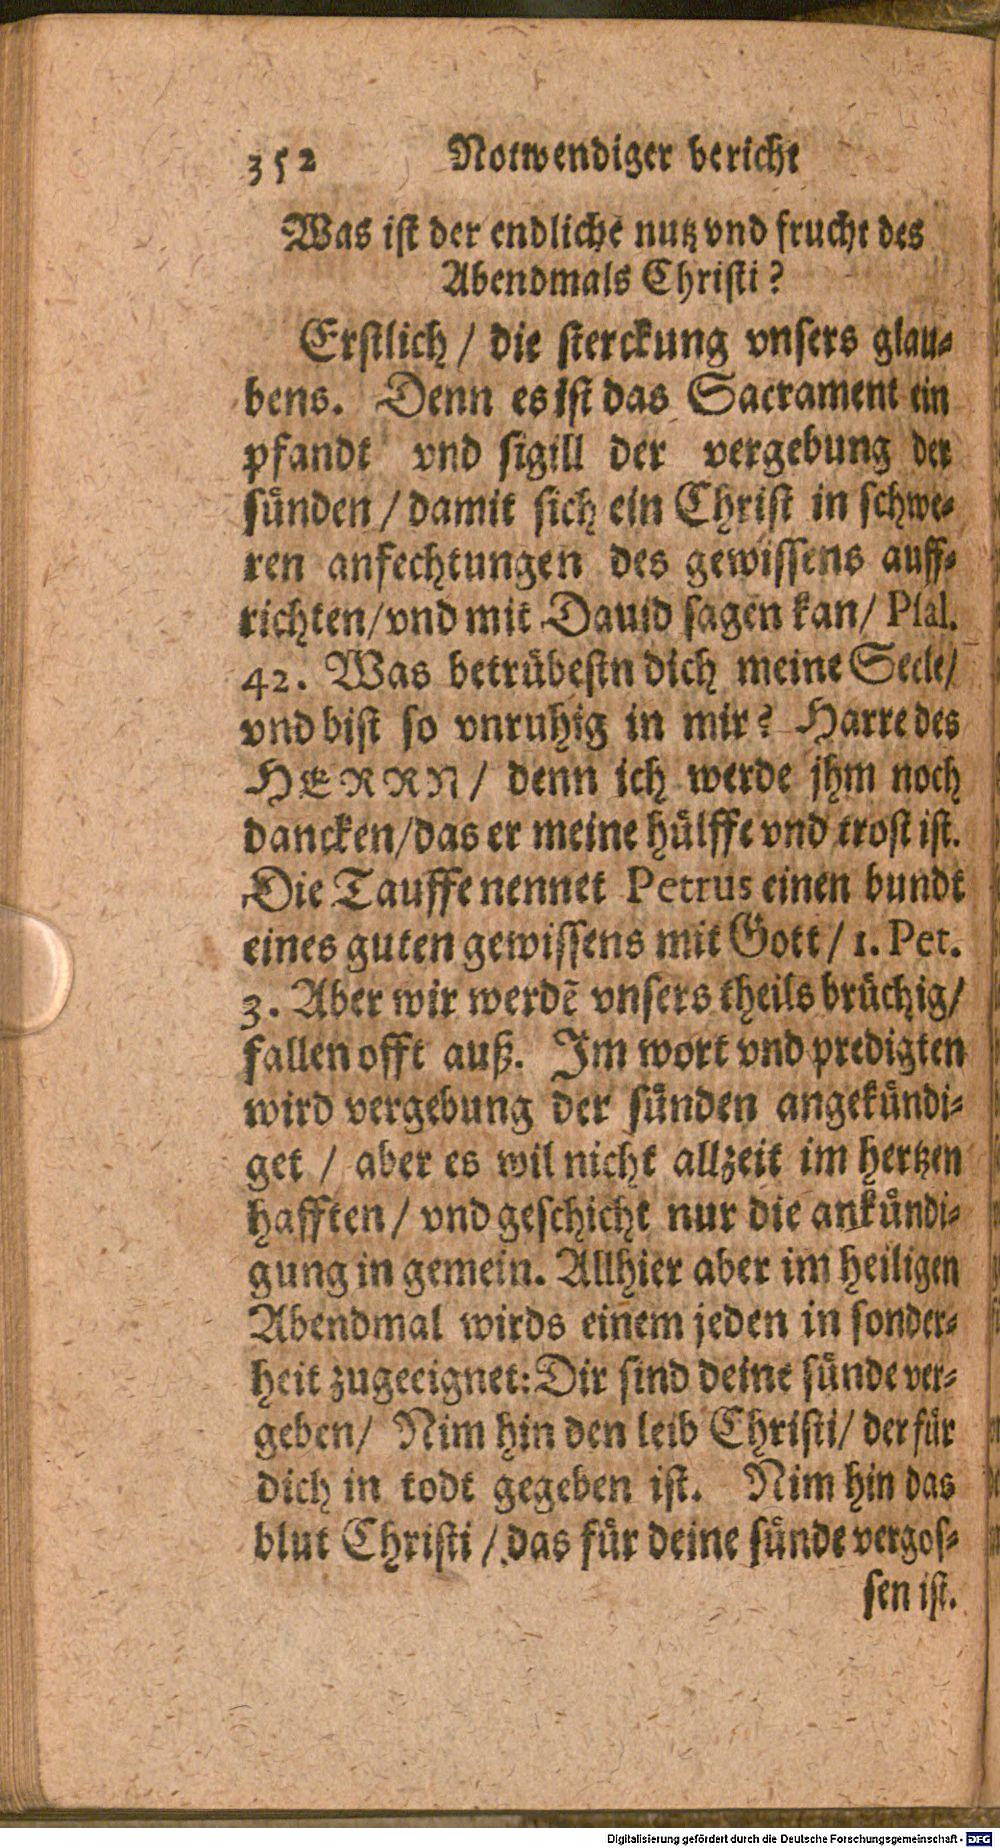 352 Notwendiger bericht
Was ist der endliche nutz vnd frucht des
Abendmals Christi?
Erstlich / die sterckung vnsers glau-
bens. Denn es ist das Sacrament ein
pfandt vnd sigill der vergebung der
sünden / damit sich ein Christ in schwe-
ren anfechtungen des gewissens auff-
richten / vnd mit Dauid sagen kan / Psal.
42. Was betrübestu dich meine Seele /
vnd bist so vnruhig in mir? Harre des
HERRN / denn ich werde jhm noch
dancken / das er meine hülffe vnd trost ist.
Die Tauffe nennet Petrus einen bundt
eines guten gewissens mit Gott / 1. Pet.
3. Aber wir werdē vnsers theils brüchig /
fallen offt auß. Im wort vnd predigten
wird vergebung der sünden angekündi-
get / aber es wil nicht allzeit im hertzen
hafften / vnd geschicht nur die ankündi-
gung in gemein. Allhier aber im heiligen
Abendmal wirds einem jeden in sonder-
heit zugeeignet: Dir sind deine sünde ver-
geben / Nim hin den leib Christi / der für
dich in todt gegeben ist. Nim hin das
blut Christi / das für deine sünde vergos-
sen ist.
Digitalisierung gefördert durch die Deutsche Forschungsgemeinschaft - DFG